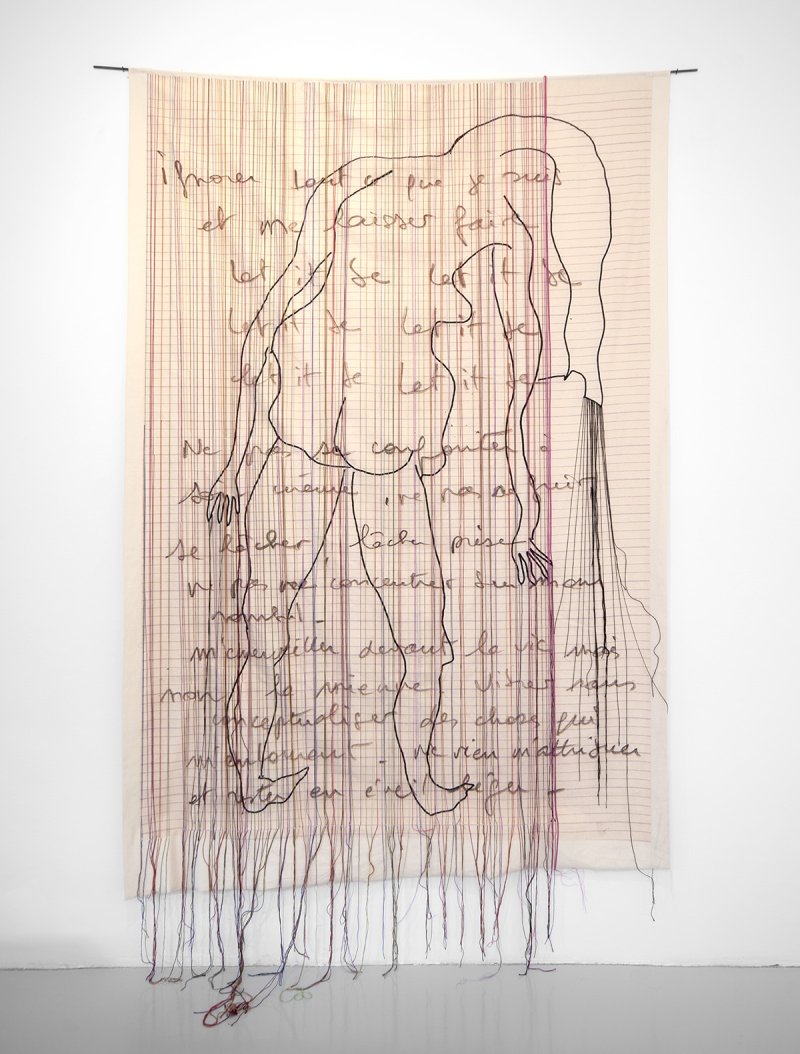 ignorer tout ce que je suis
et me laisser faire
let it be let it be
let it be let it be
let it be let it be
Ne pas se confronter à
soi même, ne pas
se lâcher, lâcher prise
ne pas me concentrer sur mon
nombril -
m'émerveiller devant la vie mais
non la mienne vibrer sans
conceptualiser des choses qui
m'entourent - ne rien m'attribuer
et rester en éveil léger -